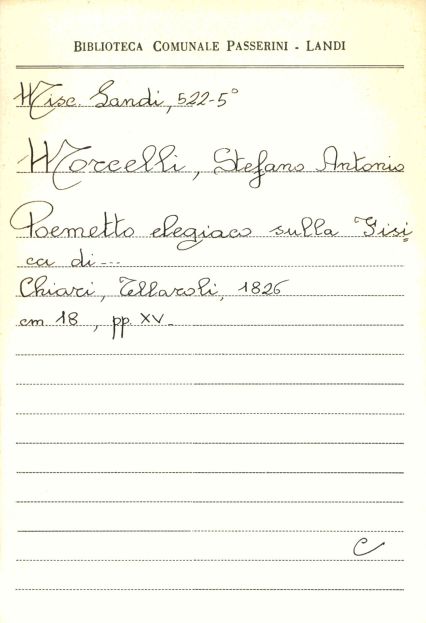 BIBLIOTECA COMUNALE PASSERINI - LANDI
Misc. Landi, 522-5°
Morcelli, Stefano Antonio
Poemetto elegiaco sulla Fisi=
ca di...
Chiari, Tellaroli, 1826
cm 18, pp. XV.
C